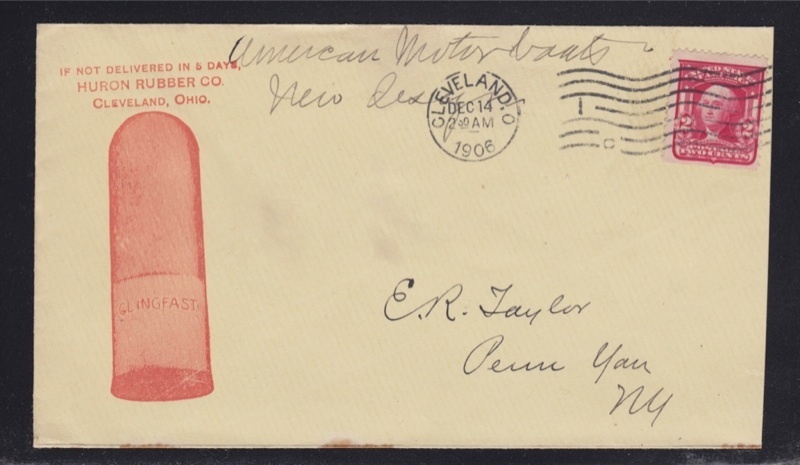 IF NOT DELIVERED IN 5 DAYS,
HURON RUBBER CO.
CLEVELAND, OHIO.
American Motor boats
New
CLEVELAND, O
DEC 14
AM
1906
CLINGFAST
2 2
TWO CENTS
E.R. Taylor
Penn Yan
NY